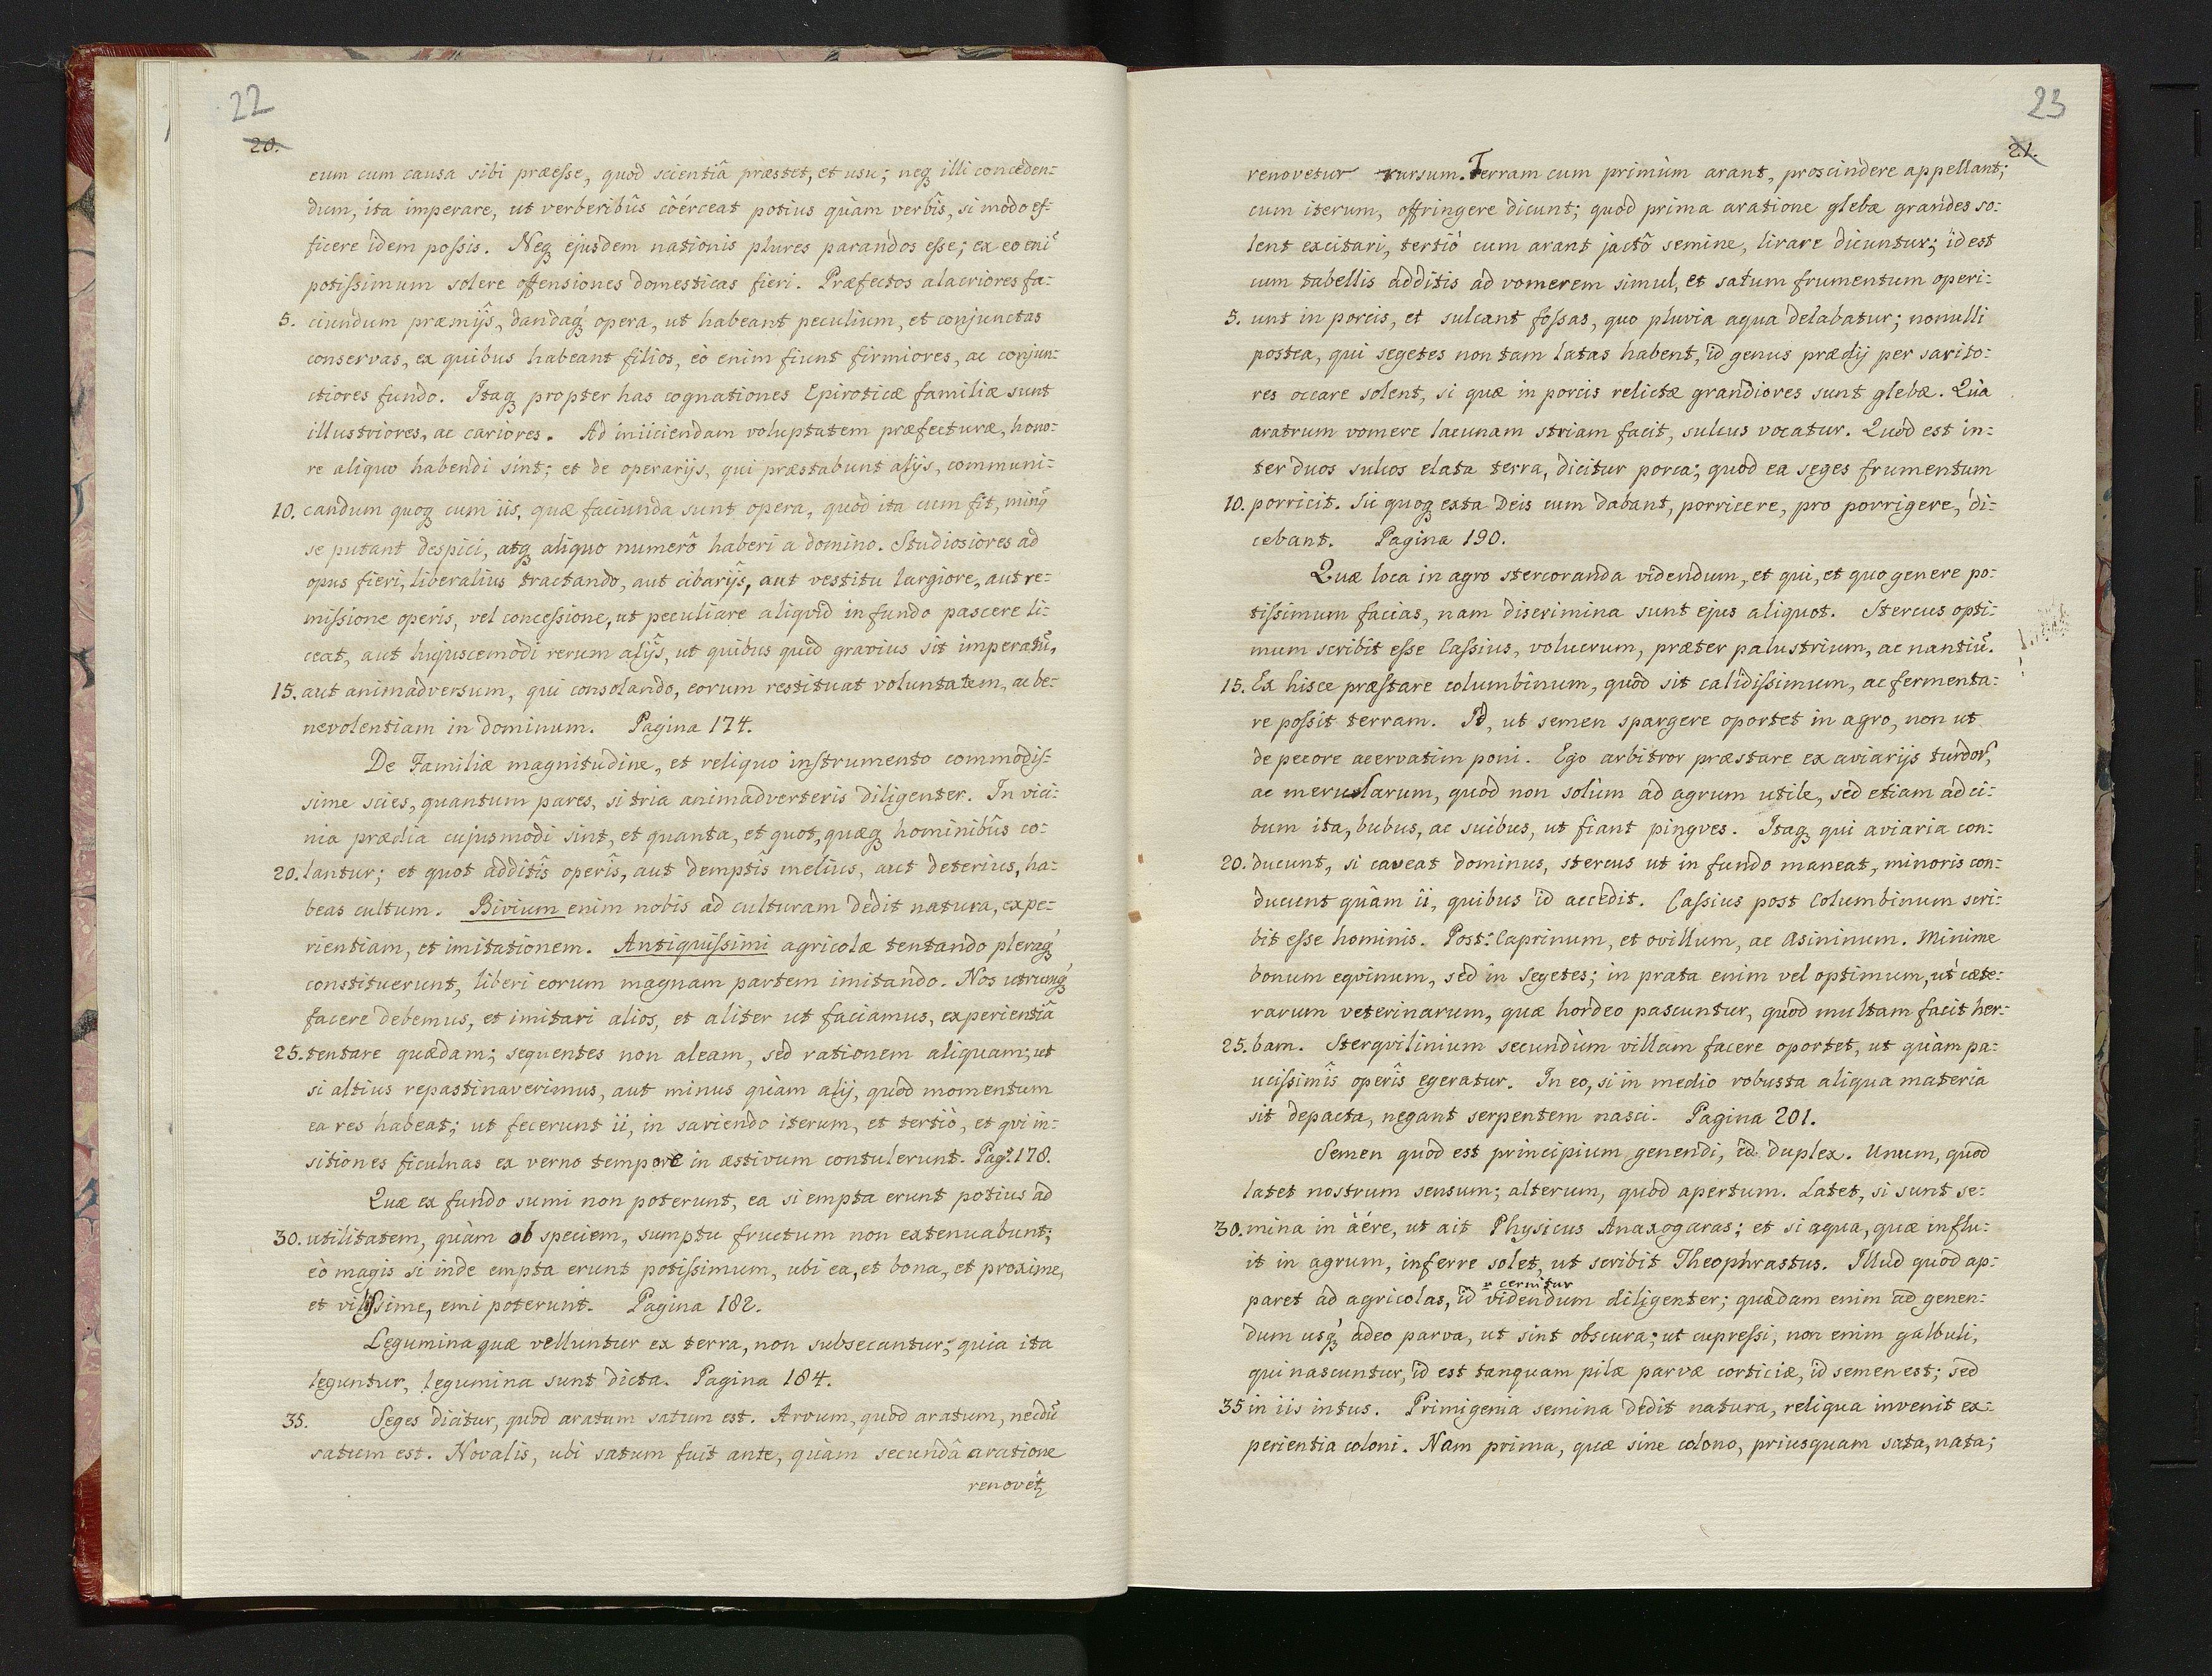 22
20.
eum cum causa sibi præesse, quod scientiâ præstet, et usu; neq illi conceden:
dum, ita imperare, ut verberibûs còérceat potius quàm verbîs, si modo ef-
ficere idem possis. Neq ejusdem nationis plures parandos esse; ex eo eni͠
potissimum solere offensiones domesticas fieri. Præfectos alacriores fa:
5. ciundum præmijs, dandaq opera, ut habeant peculium, et conjunctas
conservas, ex quibus habeant filios, eò enim fiunt firmiores, ac conjun:
ctiores fundo. Itaq propter has cognationes Epiroticæ familiæ sunt
illustriores, ac cariores. Ad iniiciendam voluptatem præfecturæ, hono:
re aliquo habendi sint; et de operarijs, qui præstabunt alijs, communi:
10. candum quoq cum iis, quæ faciunda sunt opera, quod ita cum fit, minq
se putant despici, atq aliquo numerô haberi a domino. Studiosiores ad
opus fieri, liberalius tractando, aut cibarijs, aut vestitu largiore, aut re:
missione operis, vel concessione, ut peculiare aliqvid in fundo pascere li:
ceat, aut hujuscemodi rerum alijs, ut quibus quid gravius sit imperatu͠,
15. aut animadversum, qui consolando, eorum restituat voluntatem, ac be:
nevolentiam in dominum. Pagina 174.
De Familiæ magnitudine, et reliquo instrumento commodis-
sime scies, quantum pares, si tria animadverteris diligenter. In vici:
nia prædia cujusmodi sint, et quanta, et quot, quæq hominibûs co:
20. lantur; et quot additîs operîs, aut demptîs melius, aut deterius, ha:
beas cultum. Bivium enim nobis ad culturam dedit natura, expe:
rientiam, et imitationem. Antiquissimi agricolæ tentando pleraq
constituerunt, liberi eorum magnam partem imitando. Nos utrumq
facere debemus, et imitari alios, et aliter ut faciamus, experientiâ
25. tentare quædam; sequentes non aleam, sed rationem aliquam; ut
si altius repastinaverimus, aut minus quàm alij, quod momentum
ea res habeat; ut fecerunt ii, in sariendo iterum, et tertiò, et qvi in:
sitiones ficulnas ex verno tempore in æstivum contulerunt. Pag: 178.
Quæ ex fundo sumi non poterunt, ea si empta erunt potius ad
30. utilitatem, quàm ob speciem, sumptu fructum non extenuabunt;
eò magis si inde empta erunt potissimum, ubi ea, et bona, et proxime,
et vilissime, emi poterunt. Pagina 182.
Legumina quæ velluntur ex terra, non subsecantur; quia ita
leguntur, legumina sunt dicta. Pagina 184.
35. Seges dicitur, quod aratum satum est. Arvum, quod aratum, necdu͠
satum est. Novalis, ubi satum fuit ante, quàm secundâ aratione
renovet̃
23
21.
renovetur rursum. Terram cum primùm arant, proscindere appellant;
cum iterum, offringere dicunt; quod prima aratione glebæ grandes so:
lent excitari, tertiò cum arant jactô semine, lirare dicuntur; id est
cum tabellis additis ad vomerem simul, et satum frumentum operi:
5. unt in porcis, et sulcant fossas, quo pluvia aqua delabatur; nonulli
postea, qui segetes non tam latas habent, id genus prædij per sarito:
res occare solent, si quæ in porcis relictæ grandiores sunt glebæ. Quà
aratrum vomere lacunam striam facit, sulcus vocatur. Quod est in:
ter duos sulcos elata terra, dicitur porca; quod ea seges frumentum
10. porricit. Sic quoq exta Deis cum dabant, porricere, pro porrigere, di:
cebant. Pagina 190.
Quæ loca in agro stercoranda videndum, et qui, et quo genere po:
tissimum facias, nam discrimina sunt ejus aliquot. Stercus opti:
mum scribit esse Cassius, volucrum, præter palustrium, ac nantiu͠.
15. Ex hisce præstare columbinum, quod sit calidissimum, ac fermenta:
re possit terram. Id, ut semen spargere oportet in agro, non ut
de pecore acervatim poni. Ego arbitror præstare ex aviarijs turdor,
ac merularum, quod non solùm ad agrum utile, sed etiam ad ci:
bum ita, bubus, ac suibus, ut fiant pingves. Itaq qui aviaria con:
20. ducunt, si caveat dominus, stercus ut in fundo maneat, minoris con:
ducunt quâm ii, quibus id accedit. Cassius post Columbinum scri:
bit esse hominis. Post: Caprinum, et ovillum, ac Asininum. Minime
bonum eqvinum, sed in segetes; in prata enim vel optimum, ut cæte:
rarum veterinarum, quæ hordeo pascuntur, quod multam facit her:
25. bam. Sterqvilinium secundùm villam facere oportet, ut quàm pa:
ucissimîs operîs egeratur. In eo, si in medio robusta aliqua materia
sit depacta, negant serpentem nasci. Pagina 201.
Semen quod est principium genendi, id duplex. Unum, quod
latet nostrum sensum; alterum, quod apertum. Latet, si sunt se:
30. mina in àére, ut ait Physicus Anaxogaras; et si aqua, quæ influ:
it in agrum, inferre solet, ut scribit Theophrastus. Illud quod ap:
v cernitur
paret ad agricolas, id videndum diligenter; quædam enim ad genen:
dum usq adeo parva, ut sint obscura; ut cupressi, non enim galbuli,
qui nascuntur, id est tanquam pilæ parvæ corticiæ, id semen est; sed
35 in iis intus. Primigenia semina dedit natura, reliqua invenit ex:
perientia coloni. Nam prima, quæ sine colono, priusquam sata, nata;